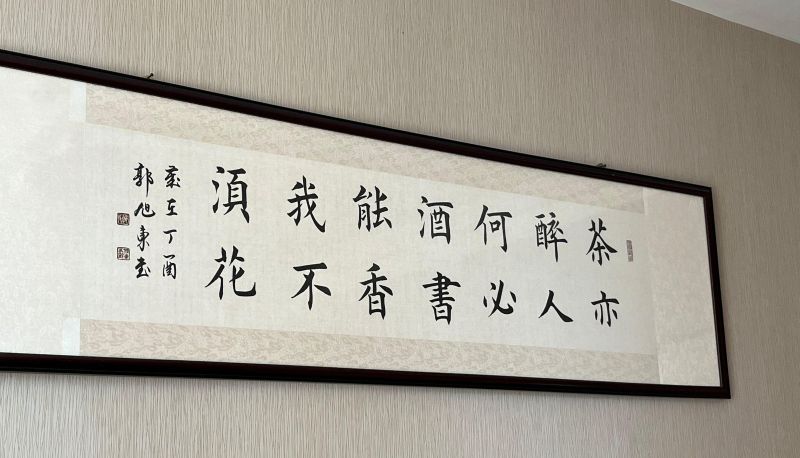 茶亦
醉人
何必
酒書
能香
我不
須花
歲在丁酉
郭旭東書